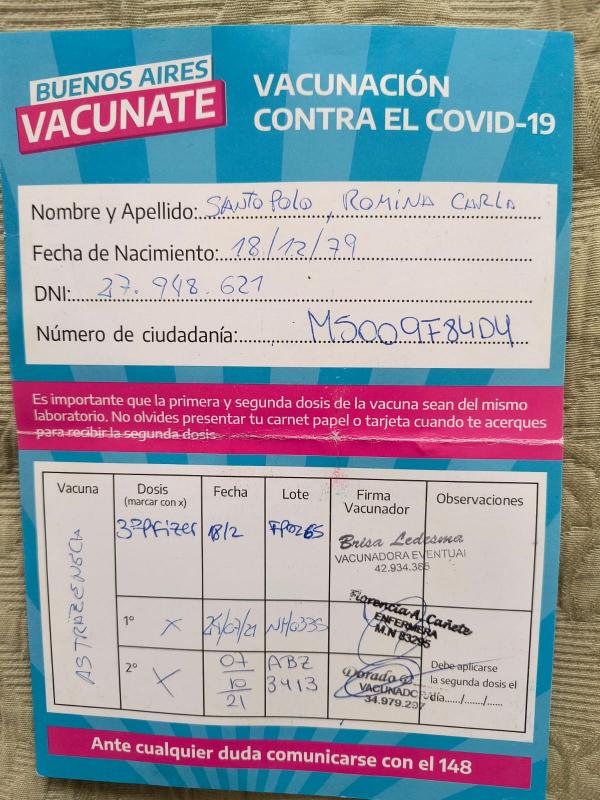 BUENOS AIRES
VACUNATE
VACUNACIÓN
CONTRA EL COVID-19
Nombre y Apellido: SANTO POLO, ROMINA CARLA
Fecha de Nacimiento: 18/12/79
DNI: 27.948.621
Número de ciudadanía: M5009F84D4
Es importante que la primera y segunda dosis de la vacuna sean del mismo
laboratorio. No olvides presentar tu carnet papel o tarjeta cuando te acerques
para recibir la segunda dosis
Vacuna Dosis Fecha Lote Firma Observaciones
(marcar con x) Vacunador
3° Pfizer 18/2
Brisa Ledesma
VACUNADORA EVENTUAL
42.934.385
ASTRAZENECA
Florencia A. Cañete
ENFERMERA
M.N 83295
1° X /07/21
2° X 07/10/21 ABZ
3413
Dorado
34.979.297
Debe aplicarse
la segunda dosis el
día....../......./......
Ante cualquier duda comunicarse con el 148